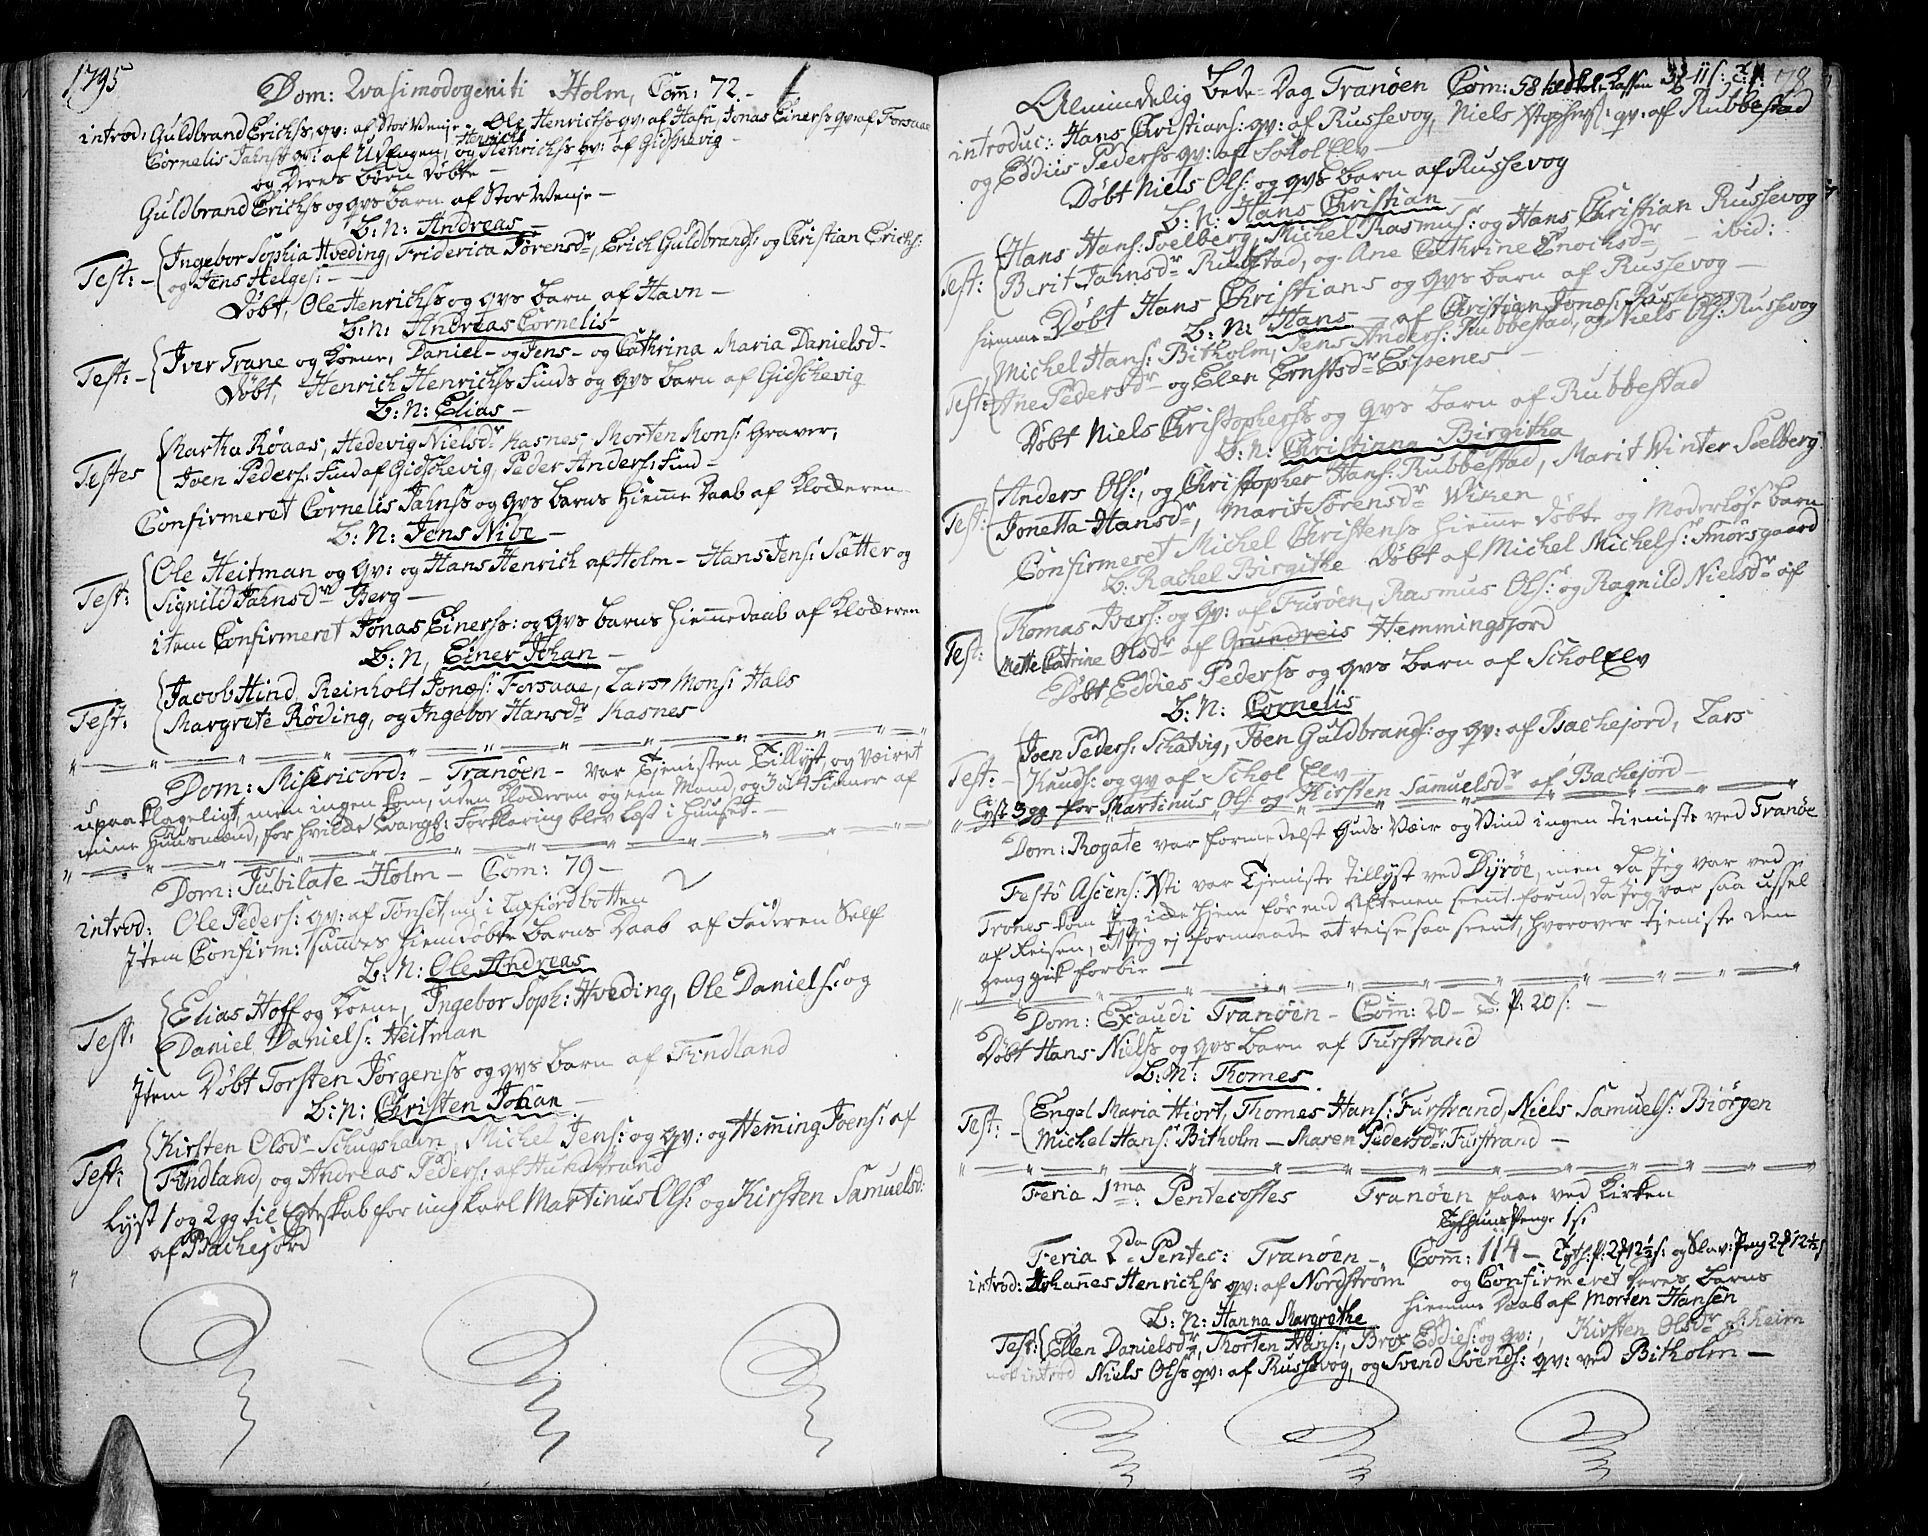 1795
Dom: Qvasimodogeniti Holm, Com: 72.
introd: Guldbrand Erichss qv: af Stor Wenje. Ole Henrichss qv: af Hafn, Jonas Einerss qv af Forsaae
Cornelis Jahnss qv: af Udengen, og Henrich Henrichss qv: af Gidschevig
og Deres børn døbte
Guldbrand Erichss og qvs barn af Stor Wenje
B:N: Andreas
Test: Ingebor Sophia Hveding, Friderica Sørensdr, Erich Guldbrands: og Christian Erichs:
og Jens Helges:
Døbt, Ole Henrichss og qvs barn af Havn
B:N: Andreas Cornelis
Test: Iver Trane og Kone, Daniel- og Jens- og Cathrina Maria Danielsd
Døbt, Henrich Henrichss Finds og qvs barn af Gidschevig
B:N: Elias
Testes Martha Røaas, Hedevig Nielsdr Kasnes, Morten Mons: Graver,
Joen Peders: Find af Gidschevig, Peder Anders: Find
Confirmeret Cornelis Jahnss og qvs barns hiemme Daab af Klokkeren
B:N: Jens Nibe
Test: Ole Heitman og qv: og Hans Henrich af Holm - Hans Jens: Sætter og
Signild Jahnsdr Berg
item Confirmeret Jonas Einerss: og qvs barns hiemmedaab af Klokkeren
B:N, Einer Johan
Test: Jacob Hind Reinholt Jonæs: Forsaae, Lars Mons: Hals
Margrete Røding, og Ingebor Hansdr Kasnes
Dom: Misericord: - Tranøen - var Tienisten Tillyst, og Væiret
upaaklageligt, men ingen kom, uden Klokkeren og een Mand, og 3 a 4 Finner af
mine Huusmænd, for hvilke Evangl: Forklaring blev læst i Huuset.
Dom: Jubilate - Holm - Com: 79 -
introd: Ole Peders: qv: af Tønset, nu i Laxfiordbotten
Item Confirm: sammes hiemdøbte barns Daab af Faderen Self
B:N: Ole Andreas
Test: Elias Hoff og Kone, Ingebor Soph: Hveding, Ole Daniels: og
Daniel Daniels: Heitman
Item Døbt Torsten Jørgenss og qvs barn af Findland
B:N: Christen Johan
Test: Kirsten Olsdr Schugshavn, Michel Jens: og qv: og Heming Joens: af
Findland, og Andreas Peders: af
Lyst 1 og 2 gg til Egteskab for ung karl Martinus Ols: og Kirsten Samuelsd:
af Bachejord
Almindelig Bede-Dag Tranøen Com: 58
introduc: Hans Christians: qv: af Russevog, Niels qv: af Rubbestad
og Eddiis Pederss qv: af Schol Elv
Døbt Niels Ols: og qvs barn af Russevog
B:N: Hans Christian
Test: Hans Hans: Soelberg, Michel Rasmus: og Hans Christian Russevog
Berit Jahnsdr Rubbestad, og Ane Cathrine Enochsdr - ibid:
Døbt Hans Christians og qvs barn af Russevog
hiemme B:N: Hans - af Christian Jonæs: Russevog
Test: Michel Hans: Bitholm, Jens Anders: Rubbestad, og Niels Ols: Russevog
Ane Pedersdr og Elen Ernstsdr Espenes
Døbt Niels Christopherss og qvs barn af Rubbestad
B:N: Christinna Birgitha
Test: Anders Ols:, og Christopher Hans: Rubbestad, Marit Winter Soelberg
Jonetta Hansdr, Marit Sørensdr Wiken
Confirmeret Michel Christenss hiemme døbte og Moderløse barn
B: Rachel Birgithe døbt af Michel Michels: Smørsgaard
Test: Thomas Ivers: og qv: af Furøen, Rasmus Ols: og Ragnild Nielsdr af
Mette Catrine Olsdr af Grundreis Hemmingsfjord
Døbt Eddies Pederss og qvs barn af Schol Elv
B:N: Cornelis
Test: Joen Peders: Schatvig, Joen Guldbrands: og qv: af Bachejord, Lars
Knuds: og qv af Schol Elv
Lyst 3 gg for Martinus Ols: og Kirsten Samuelsdr af Bachejord
Dom: Rogate var formedelst Guds Væir og Vind ingen tieniste ved Tranøe
Festo Ascens: Xti var Tjeniste tillyst ved Dyrøe, men da jeg var ved
Trones kom jeg ikke hjem før end Aftenen seent forud, da jeg var saa ussel
af Reisen, at jeg ej formaade at reise saa seent, hvorover tjeniste den
gang gik forbie
Dom: Exaudi Tranøen - Com: 20 - T:P: 20 s:
Døbt Hans Nielss og qvs barn af Furstrand
B:N: Thomes
Test: Engel Maria Hiort, Thomes Hans: Furstrand, Niels Samuels: Biørgen
Michel Hans: Bitholm - Maren Pedersdr: Furstrand
Feria 1ma: Pentecostes Tranøen faae ved Kirken
Penge 1 s:
Feria 2da Pentec: Tranøen - Comm: 114 -
introd: Johannes Henrichss qv: af Nordstrøm og Confirmeret Deres barns
B:N: Hanna Margrethe hiemme Daab af Morten Hansen
Test: Ellen Danielsdr, Morten Hans:, Eddies: og qv:, Kirsten Olsdr
introd Niels Olss qv: af Russevog, og Svend Svends: qv: ved Bitholm